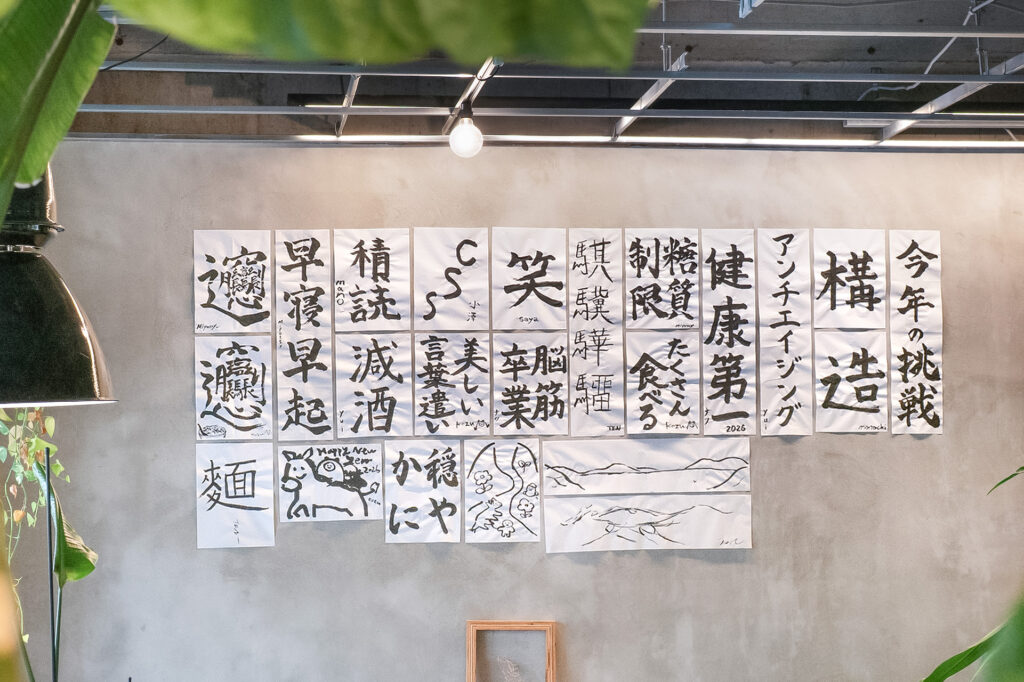 今年の挑戦
構造
アンチエイジング
健康第一
2026
糖質
制限
たくさん
食べる
騏驥驊
笑
saya
脳筋
卒業
CSS
小澤
美しい
言葉遣い
積読
maco
減酒
早寝早起
𰻞
𰻞
麵
Happy New
Year
2026
穏や
かに